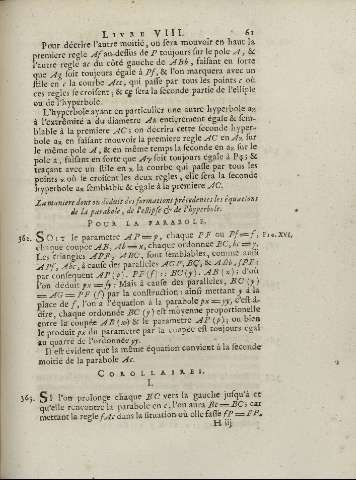 LIVRE VIII. 61
Pour décrire l'autre moitié, on fera mouvoir en haut la
premiere regle Af au dessus de P toujours sur le pole A, &
l'autre regle ar du côté gauche de ABb, faisant en sorte
que Ag soit toujours égale à Pf, & l'on marquera avec un
stile en c la courbe Acc, qui passe par tous les points c où
ces regles se croisent; & ce sera la seconde partie de l'ellipse
ou de l'hyperbole.
L'hyperbole ayant en particulier une autre hyperbole
à l'extrémité a du diametre Aa entierement égale & sem-
blable à la premiere AC; on décrira cette seconde hyper-
bole en faisant mouvoir la premiere regle AC en sur
le même pole A, & en même temps la seconde en sur le
pole faisant en sorte que soit toujours égale à &
traçant avec un stile en la courbe qui passe par tous les
points où se croisent les deux regles, elle sera la seconde
hyperbole semblable & égale à la premiere AC.
La maniere dont on déduit des formations précedentes les équations
de la parabole, de l'ellipse & de l'hyperbole.
POUR LA PARABOLE.
362. SOIT le parametre AP = p, chaque PF ou Pf = f, FIG. XVI.
chaque coupée AB, Ab = x, chaque ordonnée BC, bc = y.
Les triangles APF, ABC, sont semblables, comme aussi
APf, Abc, à cause des paralleles AGP, BC, & ABb, fPF:
par consequent AP (p). PF (f) :: BC (y). AB (x); d'où
l'on déduit px = fy: Mais à cause des paralleles, BC (y)
= AG = PF (f) par la construction: ainsi mettant y à la
place de f, l'on a l'équation à la parabole px = yy, c'est à
dire, chaque ordonnée BC (y) est moyenne proportionelle
entre la coupée AB (x) & le parametre AP (p); ou bien
le produit px du parametre par la coupée est toujours égal
au quarré de l'ordonnée yy.
Il est évident que la même équation convient à la seconde
moitié de la parabole Ac.
COROLLAIRES.
I.
363. SI l'on prolonge chaque BC vers la gauche jusqu'à ce
qu'elle rencontre la parabole en c, l'on aura Bc = BC; car
mettant la regle fAc dans la situation où elle fasse fP = FP,
H iij